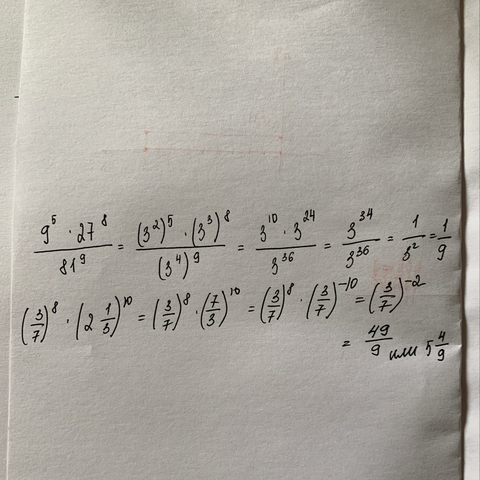 9^5 · 27^8 / 81^9 = (3^2)^5 · (3^3)^8 / (3^4)^9 = 3^10 · 3^24 / 3^36 = 3^34 / 3^36 = 1 / 3^2 = 1/9
(3/7)^8 · (2 1/3)^10 = (3/7)^8 · (7/3)^10 = (3/7)^8 · (3/7)^-10 = (3/7)^-2
= 49/9 или 5 4/9